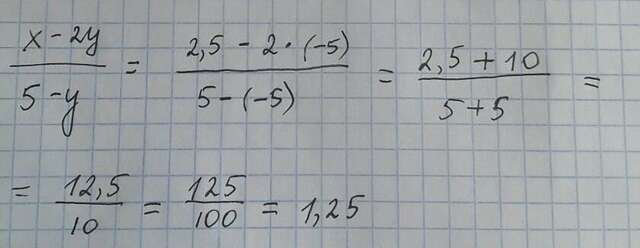 (x - 2y)/(5 - y) = (2,5 - 2 · (-5))/(5 - (-5)) = (2,5 + 10)/(5 + 5) =
= 12,5/10 = 125/100 = 1,25